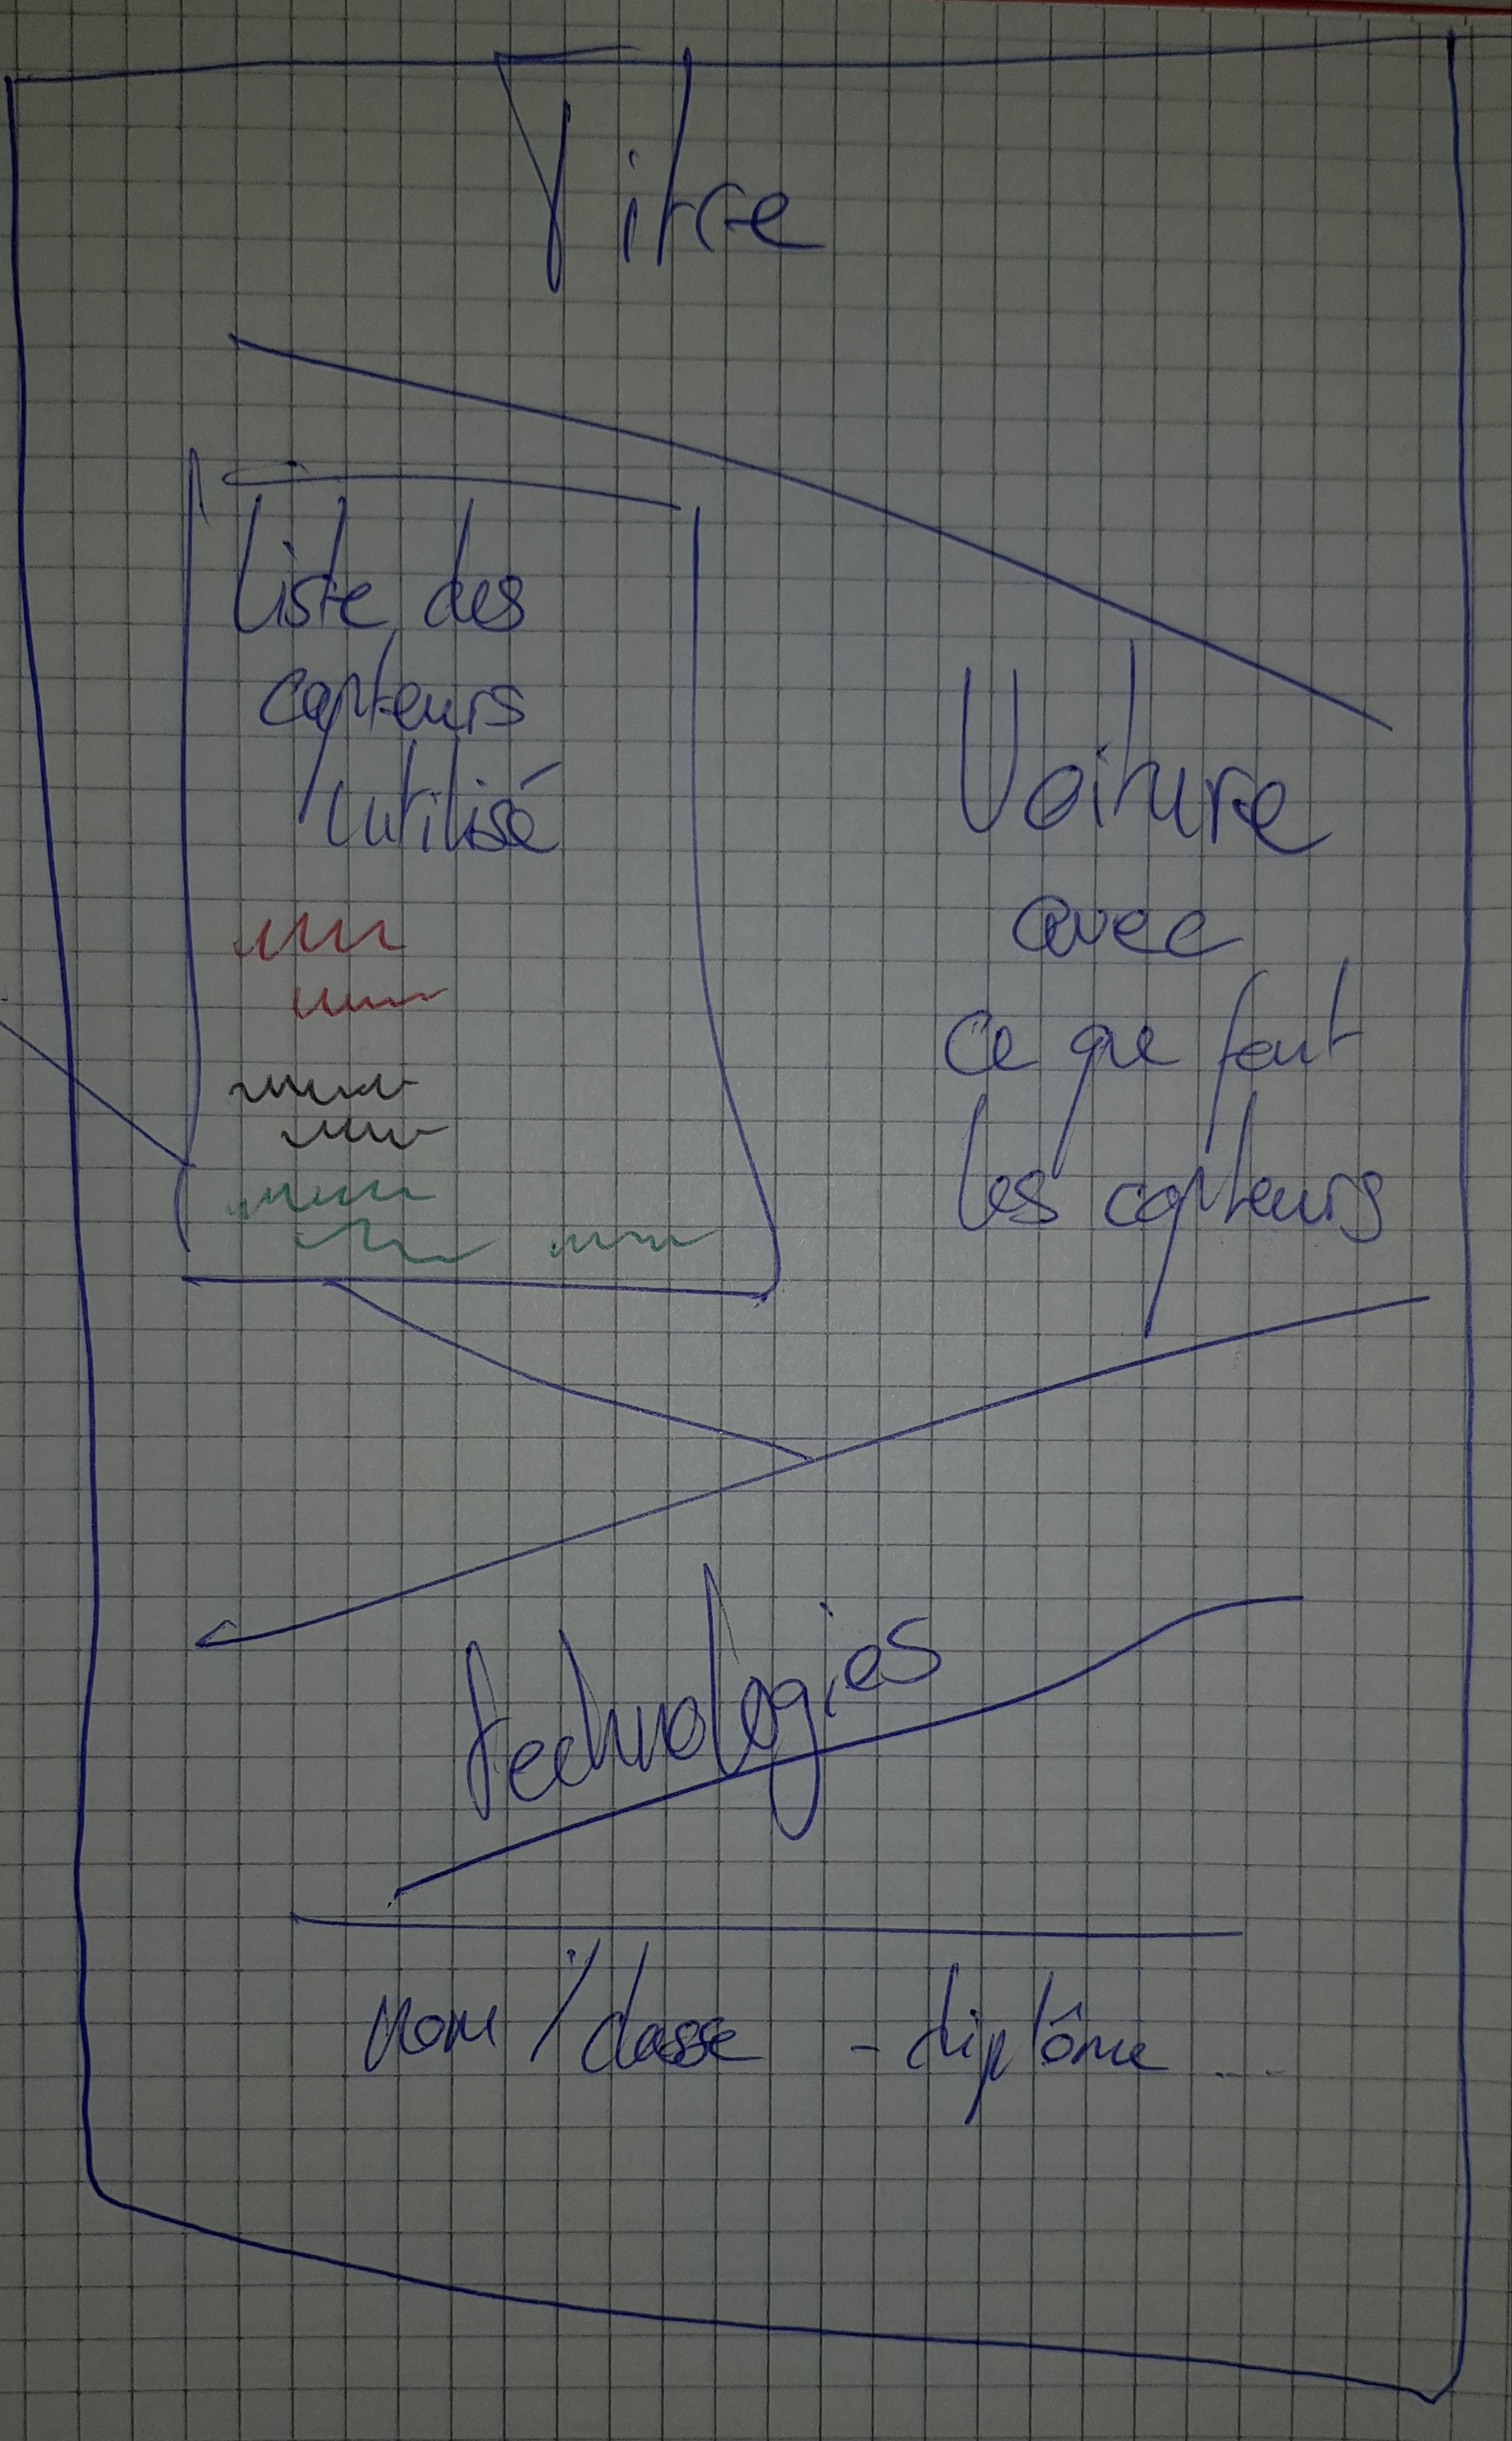 Titre
Liste des
capteurs
utilisé
Voiture
avec
ce que font
les capteurs
technologies
nom / classe - diplôme ...